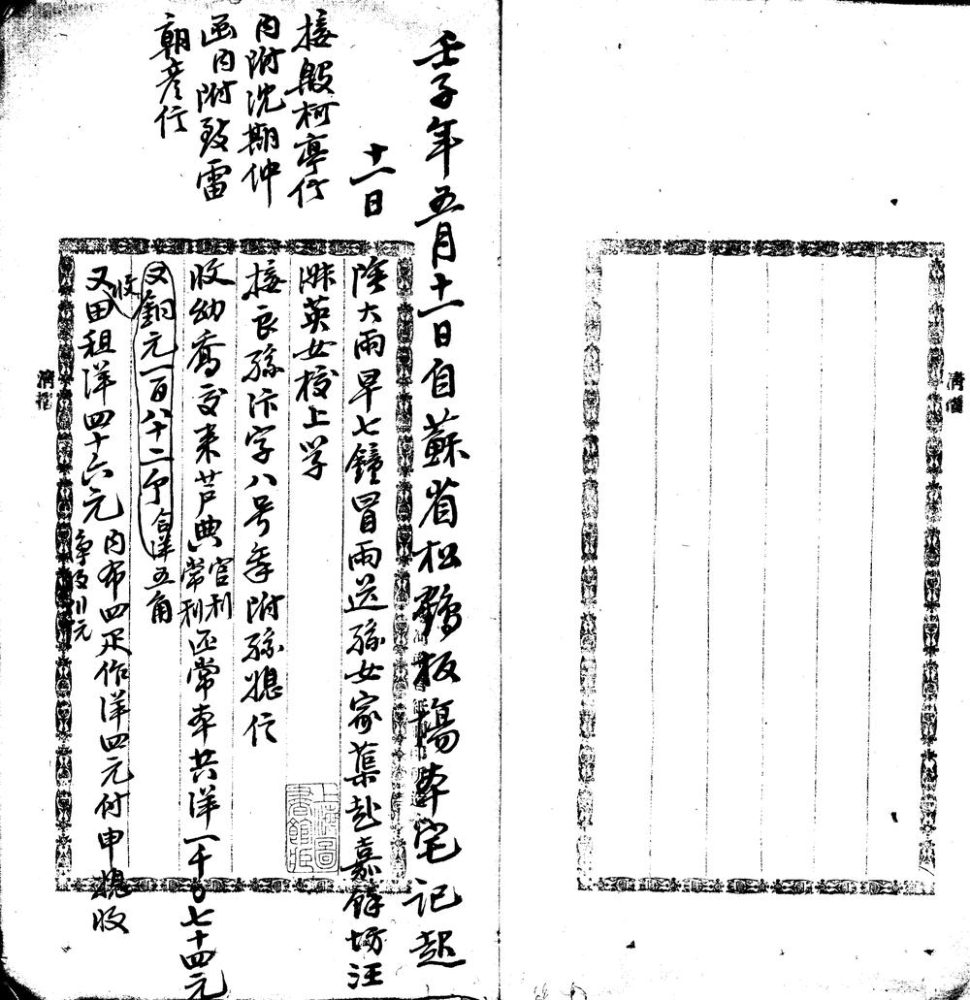 壬子年五月十一日自蘇省松鶴板場本宅記起
十一日
接殷柯亭信
内附沈期仲
函内附致雷
朝彦信
陰大雨早七鐘冒雨送孫女家蕖赴嘉餘坊汪
淋英女校上学
接良孫汴字八号平附孫媳信
收幼喬交来芦典官利常利還常本共洋一千〇七十四元
又銅元一百八十二个合洋五角
又收田租洋四十六元内布四疋作洋四元付申媳收
淨收川元
上海圖書館藏
清儀
清儀